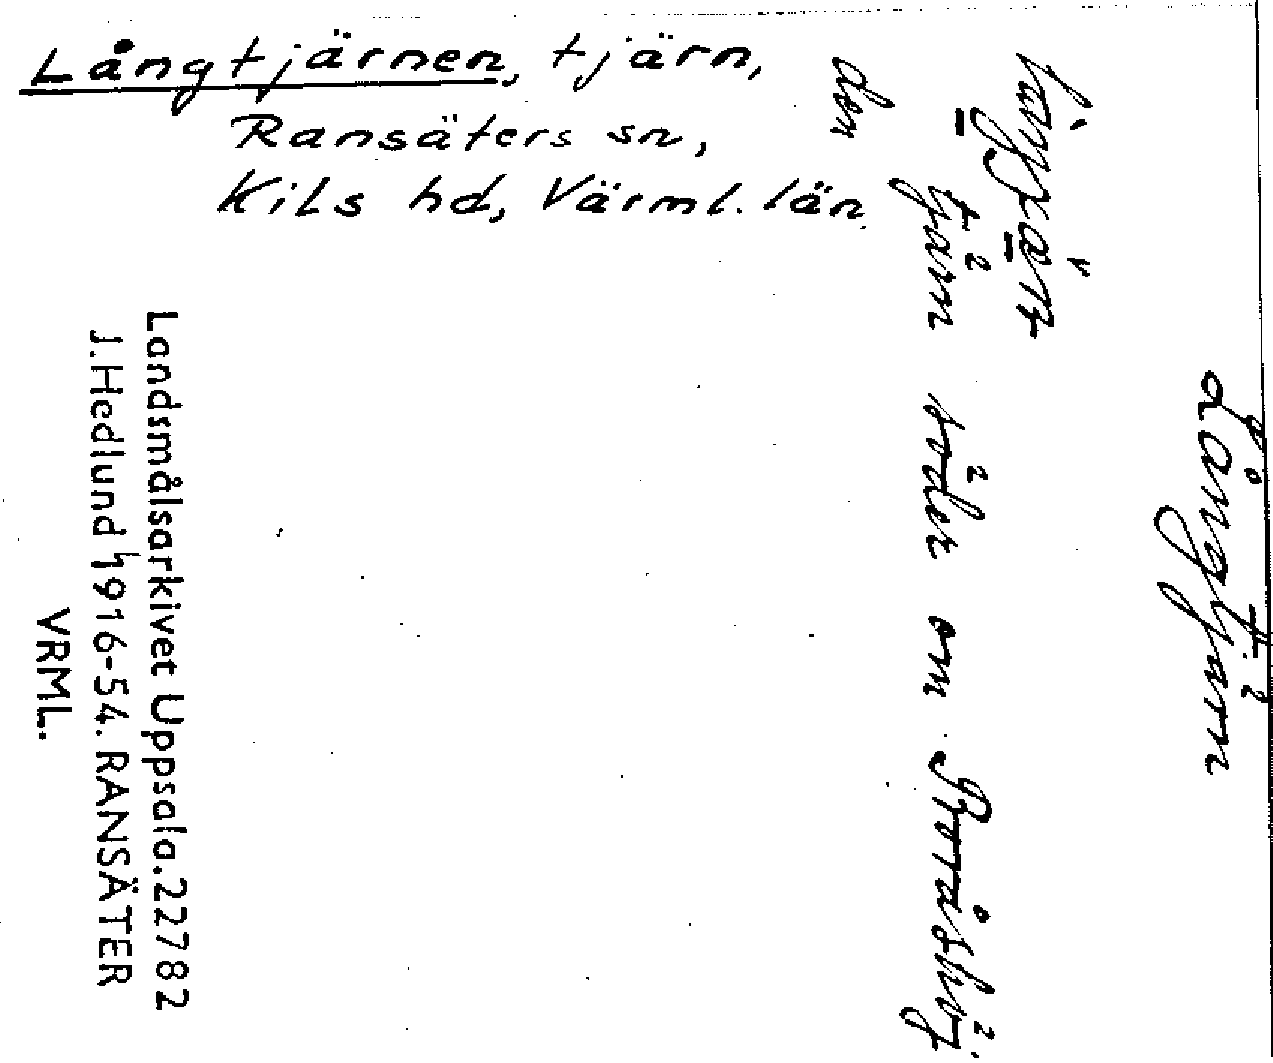 Långtjärnen, tjärn,
Ransäters sn,
Kils hd, Värml. län
Långtjärn
den
tjärn söder om
Landsmålsarkivet Uppsala. 22782
J. Hedlund 1916-54. RANSÄTER
VRML.